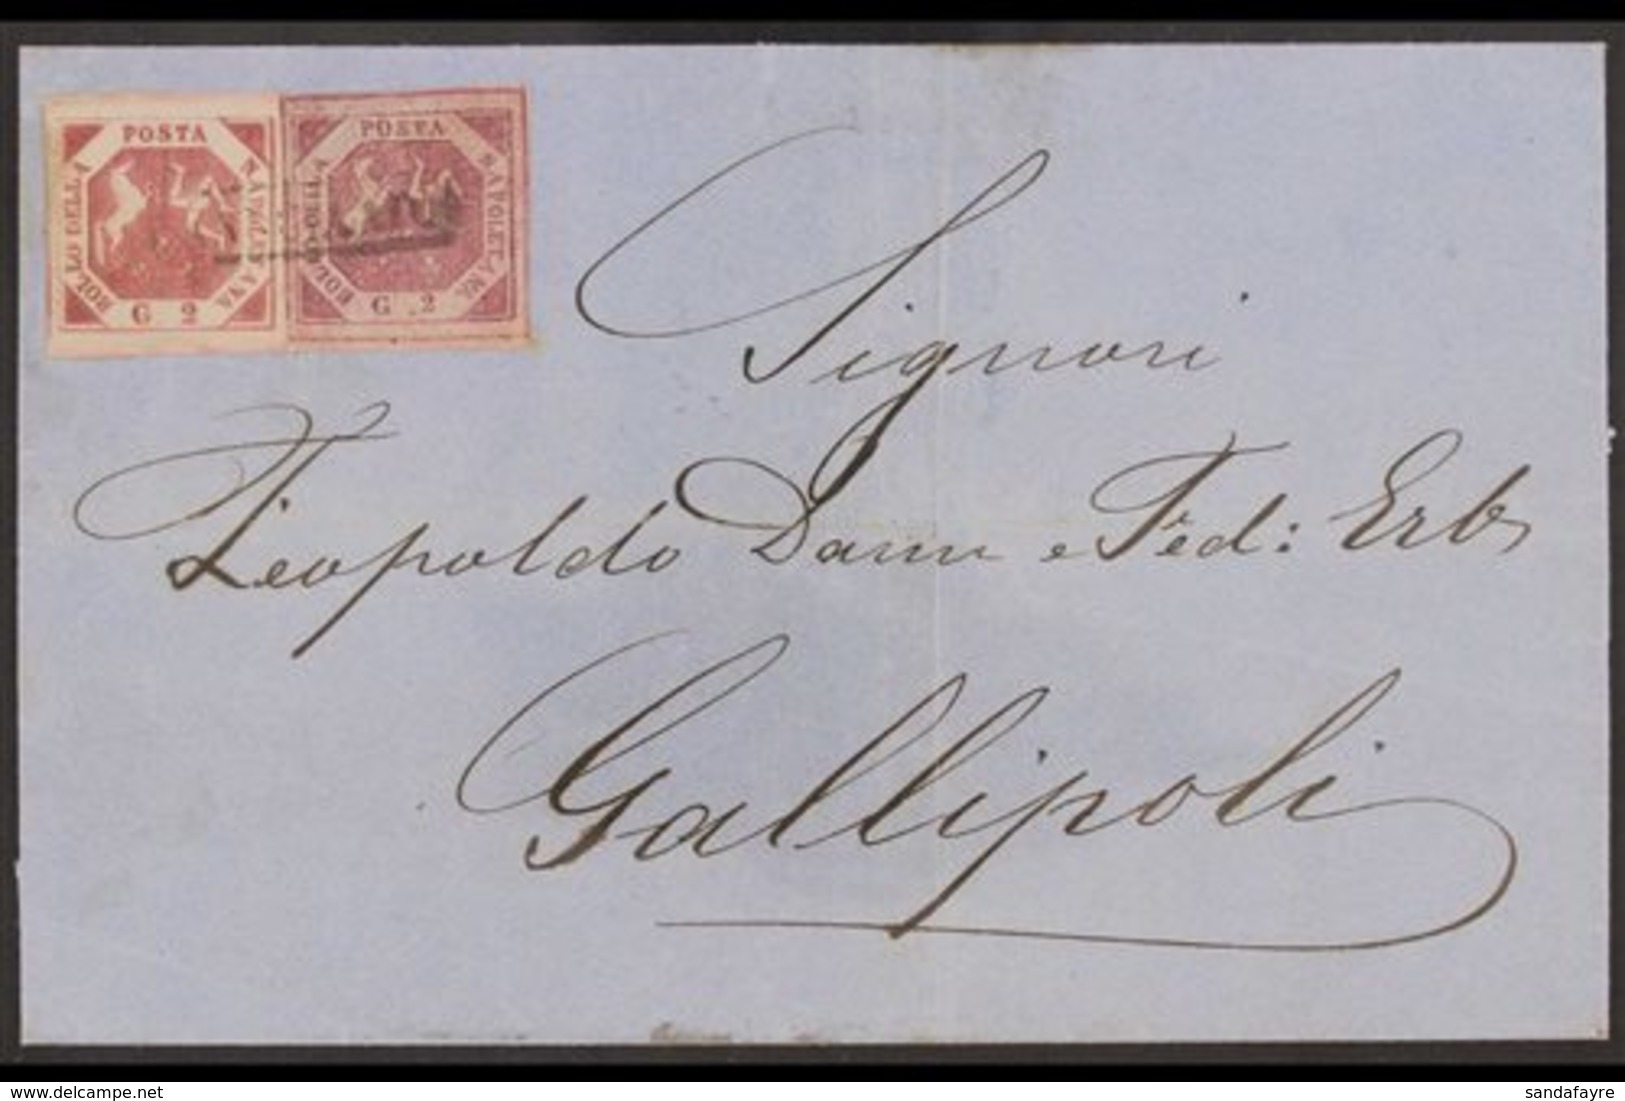 POSTA
BOLLO DELLA
NAPOLETANA
G 2
POSTA
BOLLO DELLA
NAPOLETANA
G 2
ANNULLATO
Signori
Leopoldo Dann e Fed: Erb
Gallipoli
delcampe.net
sandafayre